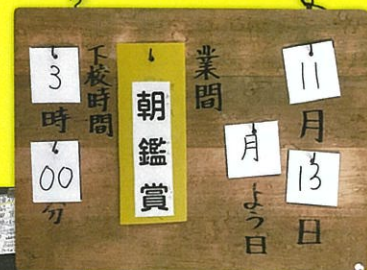 11月13日
月よう日
業間
朝鑑賞
下校時間
3時00分